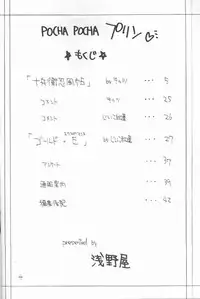 POCHA POCHA プリン♡
★もくじ★
「十兵衛忍風帖」 by ････ 5
コメント ････ 25
コメント ････ 26
「ゴールド・E」 by ････ 27
アンケート ････ 37
通販案内 ････ 39
編集後記 ････ 42
presented by
浅野屋
4